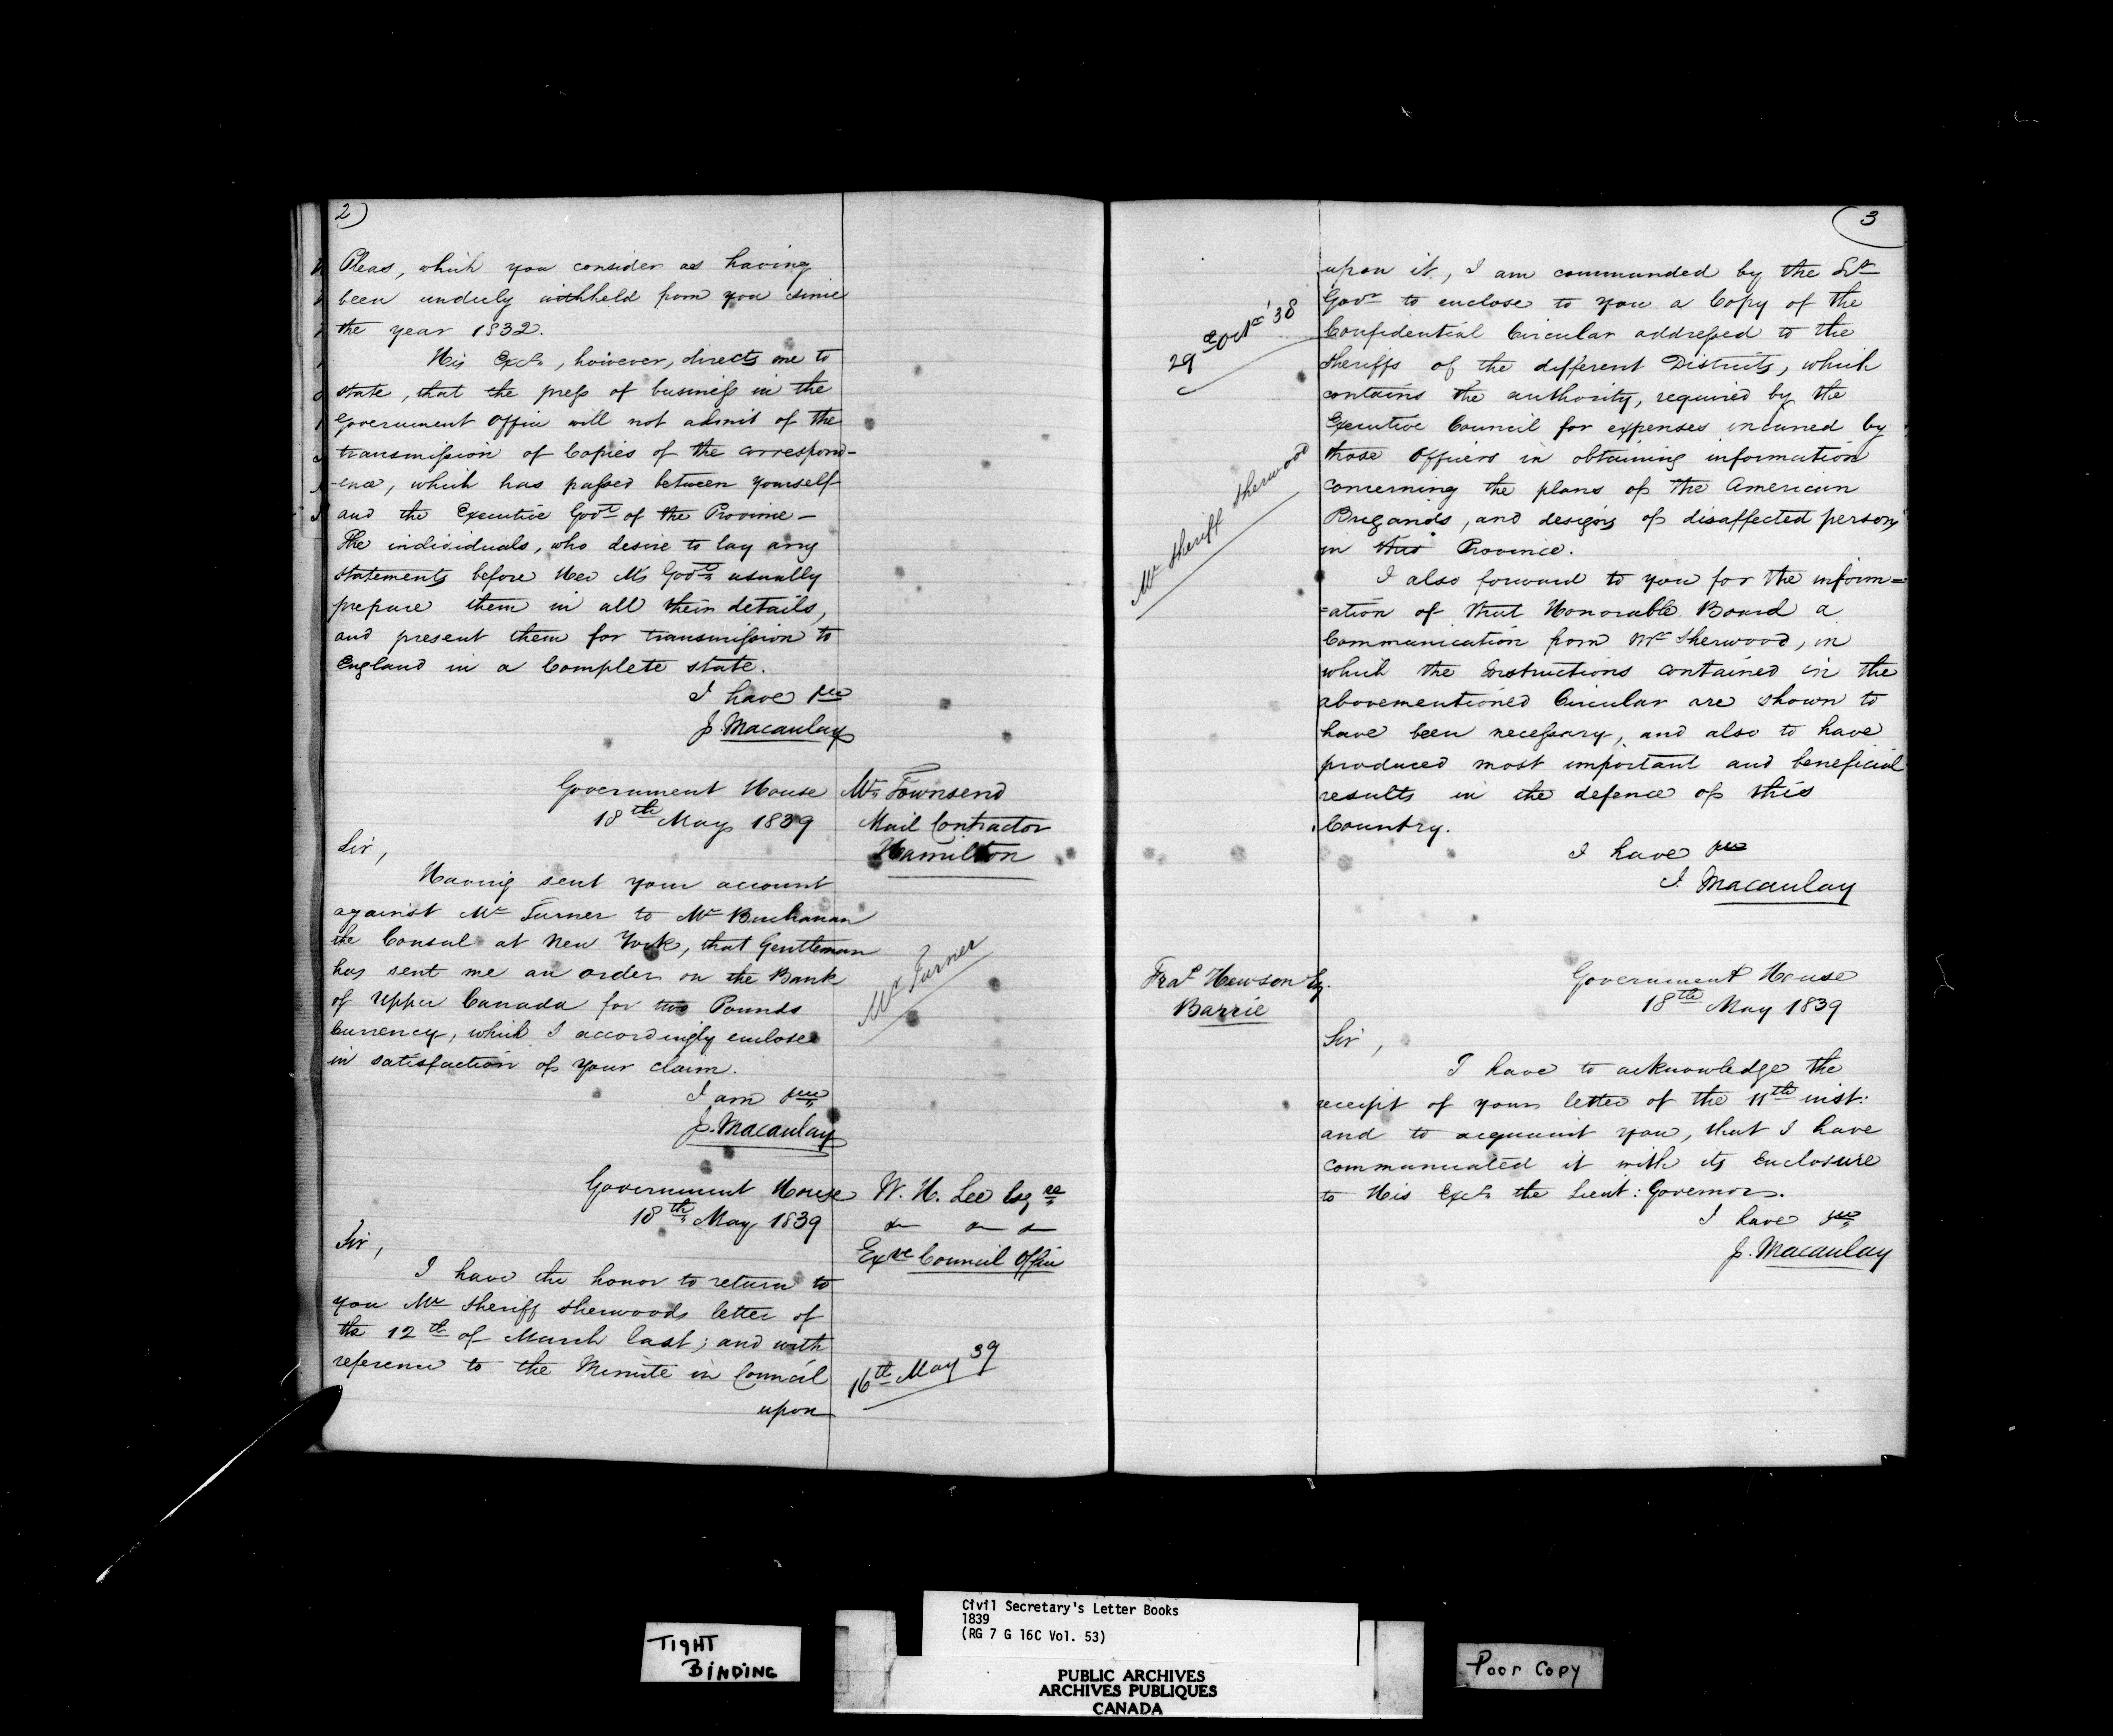 2)
Pleas, which you consider as having
been unduly withheld from you since
the year 1832.
His Excy, however, directs me to
state, that the press of business in the
Government Office will not admit of the
transmission of Copies of the correspond-
-ence, which has passed between yourself
and the Executive Govt of the Province -
The individuals, who desire to lay any
statements before Her M's Govt usually
prepare them in all their details,
and present them for transmission to
England in a Complete state.
I have &c
J. Macaulay
Government House
18th May 1839
Mr Townsend
Mail Contractor
Hamilton
Sir,
Having sent your account
against Mr Turner to Mr Buchanan
the Consul at New York, that Gentleman
has sent me an order on the Bank
of Upper Canada for two Pounds
Currency, which I accordingly enclose
in satisfaction of your claim.
Mr Turner
I am &c
J. Macaulay
Government House
18th May 1839
W. H. Lee Esqre
&c &c &c
Exve Council Office
Sir,
I have the honor to return to
you Mr Sheriff Sherwoods letter of
the 12th of March last; and with
reference to the Minute in Council
16th May 39
upon
3
upon it, I am commanded by the Lt
Govr to enclose to you a Copy of the
Confidential Circular addressed to the
Sheriffs of the different Districts, which
contains the authority, required by the
Executive Council for expenses incurred by
those Officers in obtaining information
concerning the plans of the American
Brigands, and designs of disaffected persons
in this Province.
29 Octr '38
Mr Sheriff Sherwood
I also forward to you for the inform=
=ation of that Honorable Board a
Communication from Mr Sherwood, in
which the Instructions contained in the
abovementioned Circular are shown to
have been necessary, and also to have
produced most important and beneficial
results in the defence of this
Country.
I have &c
J. Macaulay
Fras Hewson Esq.
Barrie
Government House
18th May 1839
Sir,
I have to acknowledge the
receipt of your letter of the 11th inst:
and to acquaint you, that I have
communicated it with its Enclosure
to His Excy the Lieut: Governor.
I have &c
J. Macaulay
TIGHT
BINDING
Civil Secretary's Letter Books
1839
(RG 7 G 16C Vol. 53)
PUBLIC ARCHIVES
ARCHIVES PUBLIQUES
CANADA
Poor Copy